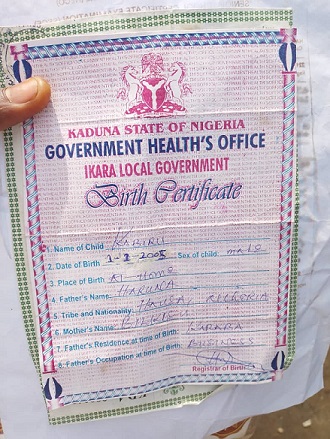 KADUNA STATE OF NIGERIA
GOVERNMENT HEALTH'S OFFICE
IKARA LOCAL GOVERNMENT
Birth Certificate
1. Name of Child KABIRU
2. Date of Birth 1-1-2008 Sex of child: male
3. Place of Birth AT HOME
4. Father's Name: HARUNA
5. Tribe and Nationality: HAUSA
6. Mother's Name
7. Father's Residence at time of Birth:
8. Father's Occupation at time of Birth: BUSINESS
Registrar of Birth